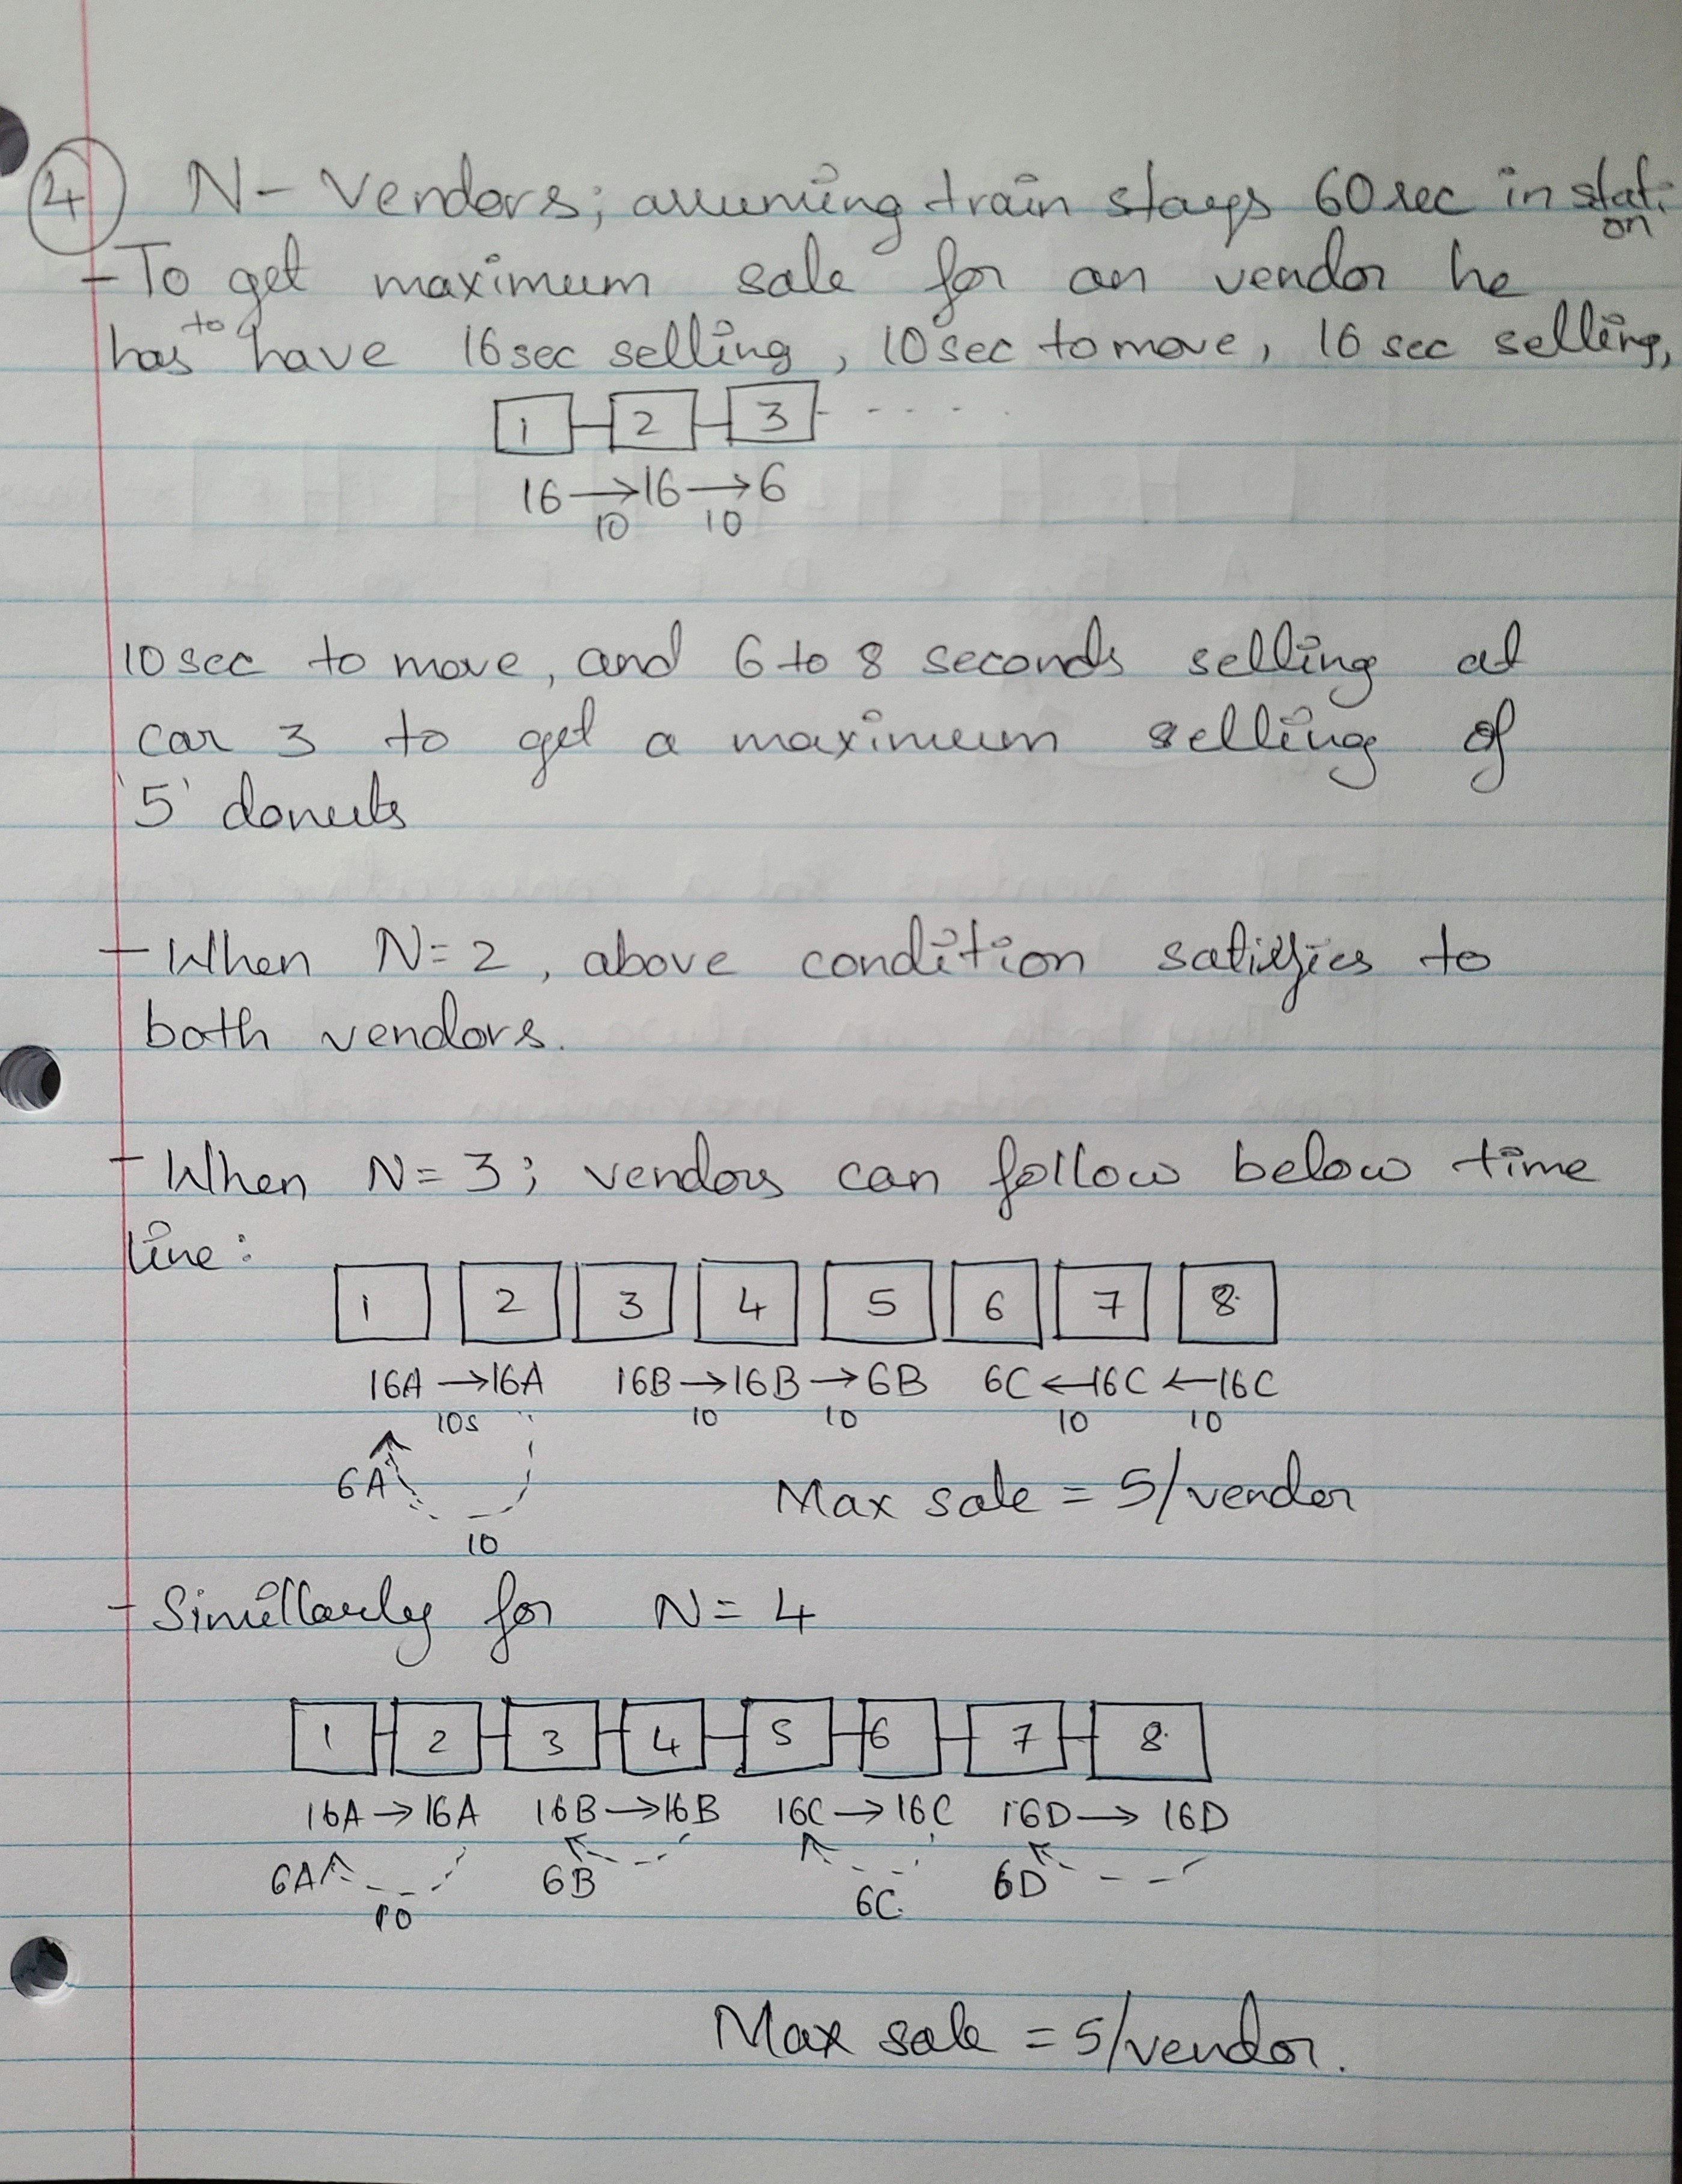 4 N- Vendors; assuming train stays 60 sec in stati
on
- To get maximum sale for an vendor he
has to have 16 sec selling, 10 sec to move, 16 sec selling,
1 2 3 - - - -
16 → 16 → 6
10 10
10 sec to move, and 6 to 8 seconds selling at
car 3 to get a maximum selling of
'5' donuts
- When N=2, above condition satisfies to
both vendors.
- When N=3; vendors can follow below time
line:
1 2 3 4 5 6 7 8
16A → 16A 16B → 16B → 6B 6C ← 16C ← 16C
10s 10 10 10 10
6A
10
Max sale = 5/vendor
- Simillarly for N=4
1 2 3 4 5 6 7 8
16A → 16A 16B → 16B 16C → 16C 16D → 16D
6A 6B 6C. 6D
10
Max sale = 5/vendor.